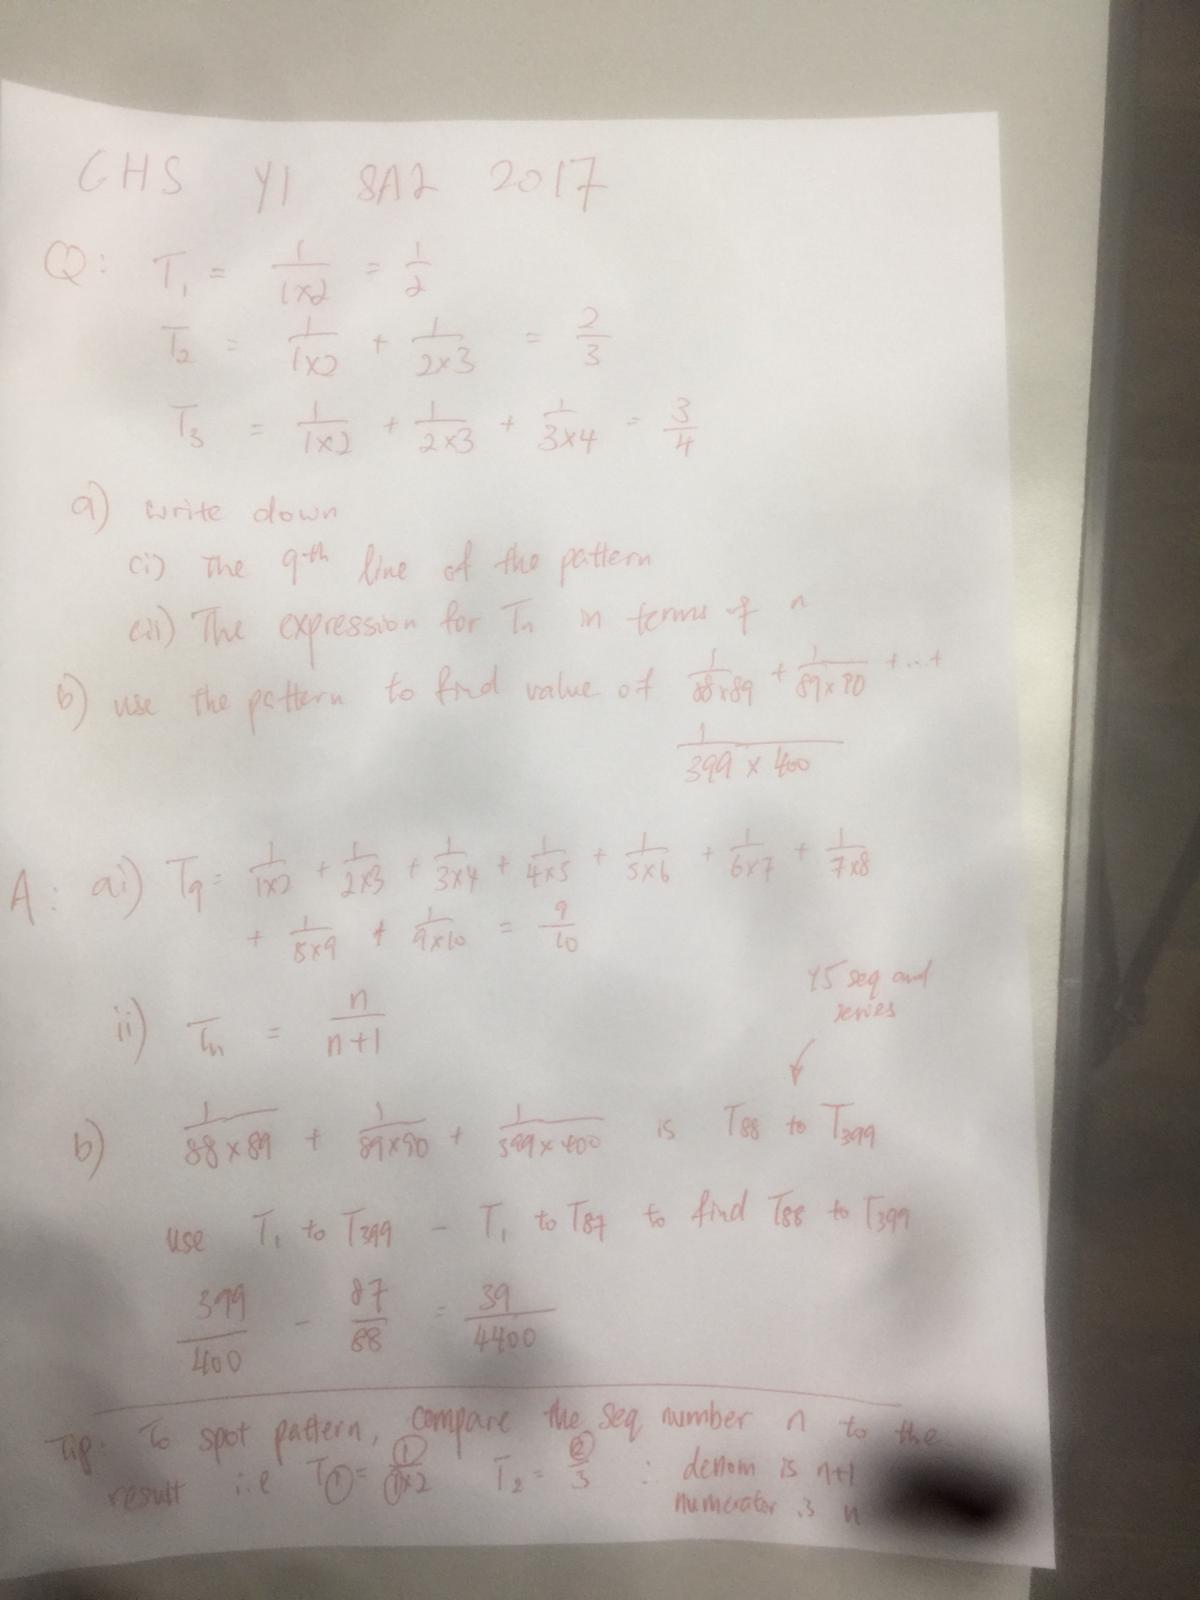 CHS Y1 SA2 2017
Q: T₁ = 1/(1×2) = 1/2
T₂ = 1/(1×2) + 1/(2×3) = 2/3
T₃ = 1/(1×2) + 1/(2×3) + 1/(3×4) = 3/4
a) write down
(i) The 9th line of the pattern
(ii) The expression for Tn in terms of n
b) use the pattern to find value of 1/(88×89) + 1/(89×90) + ... +
1/(399×400)
A: ai) T₉ = 1/(1×2) + 1/(2×3) + 1/(3×4) + 1/(4×5) + 1/(5×6) + 1/(6×7) + 1/(7×8)
+ 1/(8×9) + 1/(9×10) = 9/10
Y5 seq and
series
ii) Tn = n/(n+1)
b) 1/(88×89) + 1/(89×90) + 1/(399×400) is T₈₈ to T₃₉₉
use T₁ to T₃₉₉ - T₁ to T₈₇ to find T₈₈ to T₃₉₉
399/400 - 87/88 = 39/4400
Tip: To spot pattern, compare the seq number n to the
result i.e T① = ①/(①×2) T₂ = ②/3 : denom is n+1
numerator is n